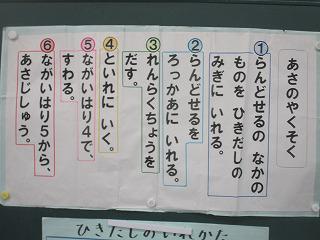 あさのやくそく
①らんどせるの なかの
ものを ひきだしの
みぎに いれる。
②らんどせるを
ろっかあに いれる。
③れんらくちょうを
だす。
④といれに いく。
⑤ながいはり4で、
すわる。
⑥ながいはり5から、
あさじしゅう。
ひきだしのいれかた